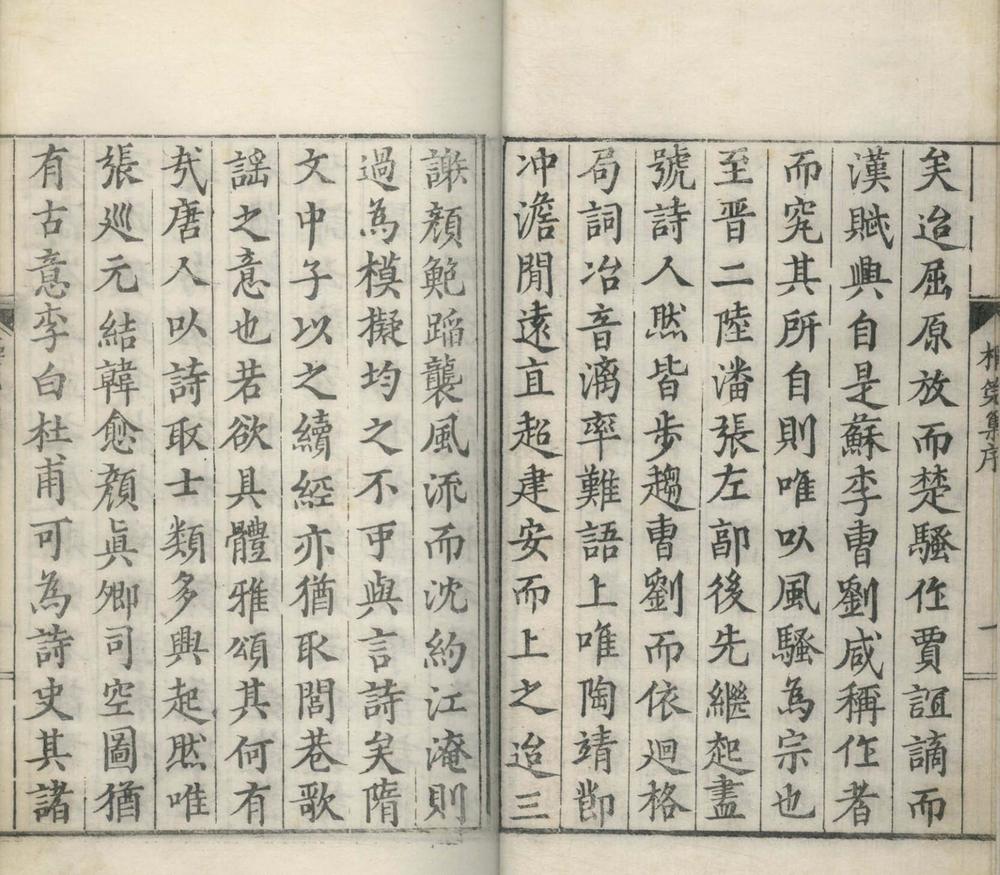 矣迨屈原放而楚騷作賈誼謫而
漢賦興自是蘇李曹劉咸稱作者
而究其所自則唯以風騷為宗也
至晋二陸潘張左郭後先繼起盡
號詩人然皆步趨曹劉而依迴格
局詞冶音漓率難語上唯陶靖節
冲澹閒遠直超建安而上之迨三
謝顏鮑蹈襲風流而沈約江淹則
過為模擬均之不可與言詩矣隋
文中子以之續經亦猶取閭巷歌
謡之意也若欲具體雅頌其何有
㢤唐人以詩取士類多興起然唯
張巡元結韓愈顏真卿司空圖猶
有古意李白杜甫可為詩史其諸
集序
一